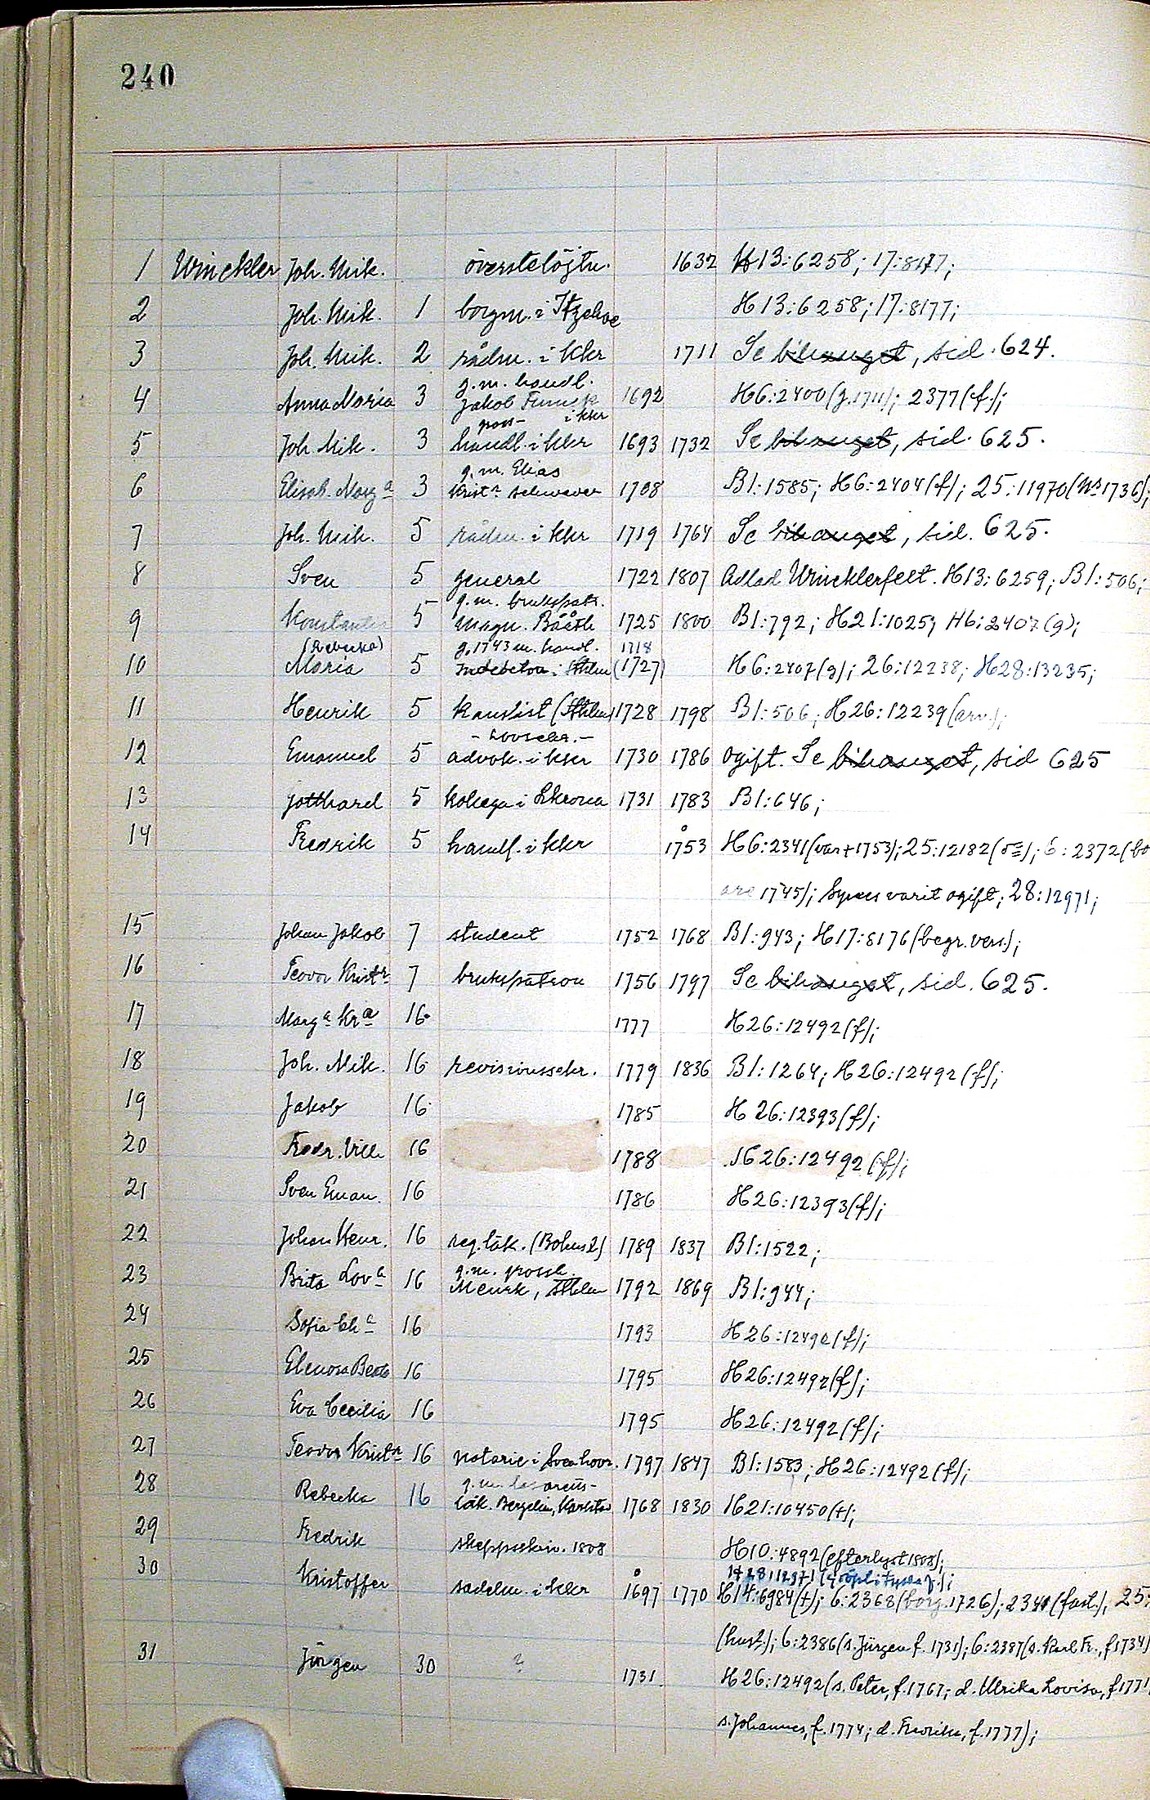 240
1 Winckler Joh. Nik. överstelöjtn. 1632 H13:6258; 17:8177;
2 Joh. Nik. 1 borgm. i Itzehoe H13:6258; 17:8177;
3 Joh. Nik. 2 rådm. i Kkr 1711 Se bihanget, sid. 624.
g.m. handl.
4 Anna Maria 3 Jakob Funck 1692 H6:2400 (g.1711); 2377 (f.);
i Kkr
5 Joh. Nik. 3 handl. i Kkr 1693 1732 Se bihanget, sid. 625.
g.m. Elias
6 Elisab. Marg.a 3 Krist.n Schwaver 1708 B1:1585; H6:2404 (f); 25:11970
7 Joh. Nik. 5 rådm. i Kkr 1719 1764 Se bihanget, sid. 625.
8 Sven 5 general 1722 1807 Adlad Wincklerfelt. H13:6259; B1:506;
g.m. brukspatr.
9 Konstantia 5 Magn. Bååth 1725 1800 B1:792; H21:1025; H6:2407 (g);
(Rebecka) g. 1743 m. handl. 1718
10 Maria 5 Indebetou i Sthlm (1727) H6:2407 (g); 26:12238; H28:13235;
11 Henrik 5 kanslist (Sthlm) 1728 1798 B1:506; H26:12239 (arv.);
- hovsekr. -
12 Emanuel 5 advok. i Kkr 1730 1786 ogift. Se bihanget, sid 625
13 Gotthard 5 kollega i Lkrona 1731 1783 B1:646;
14 Fredrik 5 handl. i Kkr å 1753 H6:2341 (var † 1753); 25:12182; 6:2372 (bo
are 1745); Synes varit ogift; 28:12971;
15 Johan Jakob 7 student 1752 1768 B1:943; H17:8176 (begr. vers.);
16 Teodor Krist.r 7 brukspatron 1756 1797 Se bihanget, sid. 625.
17 Marg.a Kr.a 16 1777 H26:12492 (f);
18 Joh. Nik. 16 revisionssekr. 1779 1836 B1:1264; H26:12492 (f);
19 Jakob 16 1785 H26:12393 (f);
20 Fredr. Vilh. 16 1788 H26:12492 (f);
21 Sven Eman. 16 1786 H26:12393 (f);
22 Johan Henr. 16 reg. läk. (Bohusl) 1789 1837 B1:1522;
g.m. grossh.
23 Brita Lov.a 16 Menck, Sthlm 1792 1869 B1:944;
24 Sofia Ch.a 16 1793 H26:12492 (f);
25 Elenora Beata 16 1795 H26:12492 (f);
26 Eva Cecilia 16 1795 H26:12492 (f);
27 Teodor Krist.n 16 notarie i Svea hovr. 1797 1847 B1:1583; H26:12492 (f);
28 Rebecka 16 läk. Bergelin, Karlstad 1768 1830 H21:10450 (†);
29 Fredrik skeppsskriv. 1808 H10:4892 (efterlyst 1808);
30 Kristoffer sadelm. i Kkr å 1697 1770 H14:6984 (†); 6:2368 (borg. 1726); 2341 (fast.); 25:
(hust.); 6:2386 (s. Jürgen f. 1731); 6:2387 (s. Karl Fr., f 1734)
31 Jürgen 30 ? 1731 H26:12492 (s. Peter, f. 1767; d. Ulrika Lovisa, f 1771
s. Johannes, f. 1774; d. Fredrika, f. 1777);